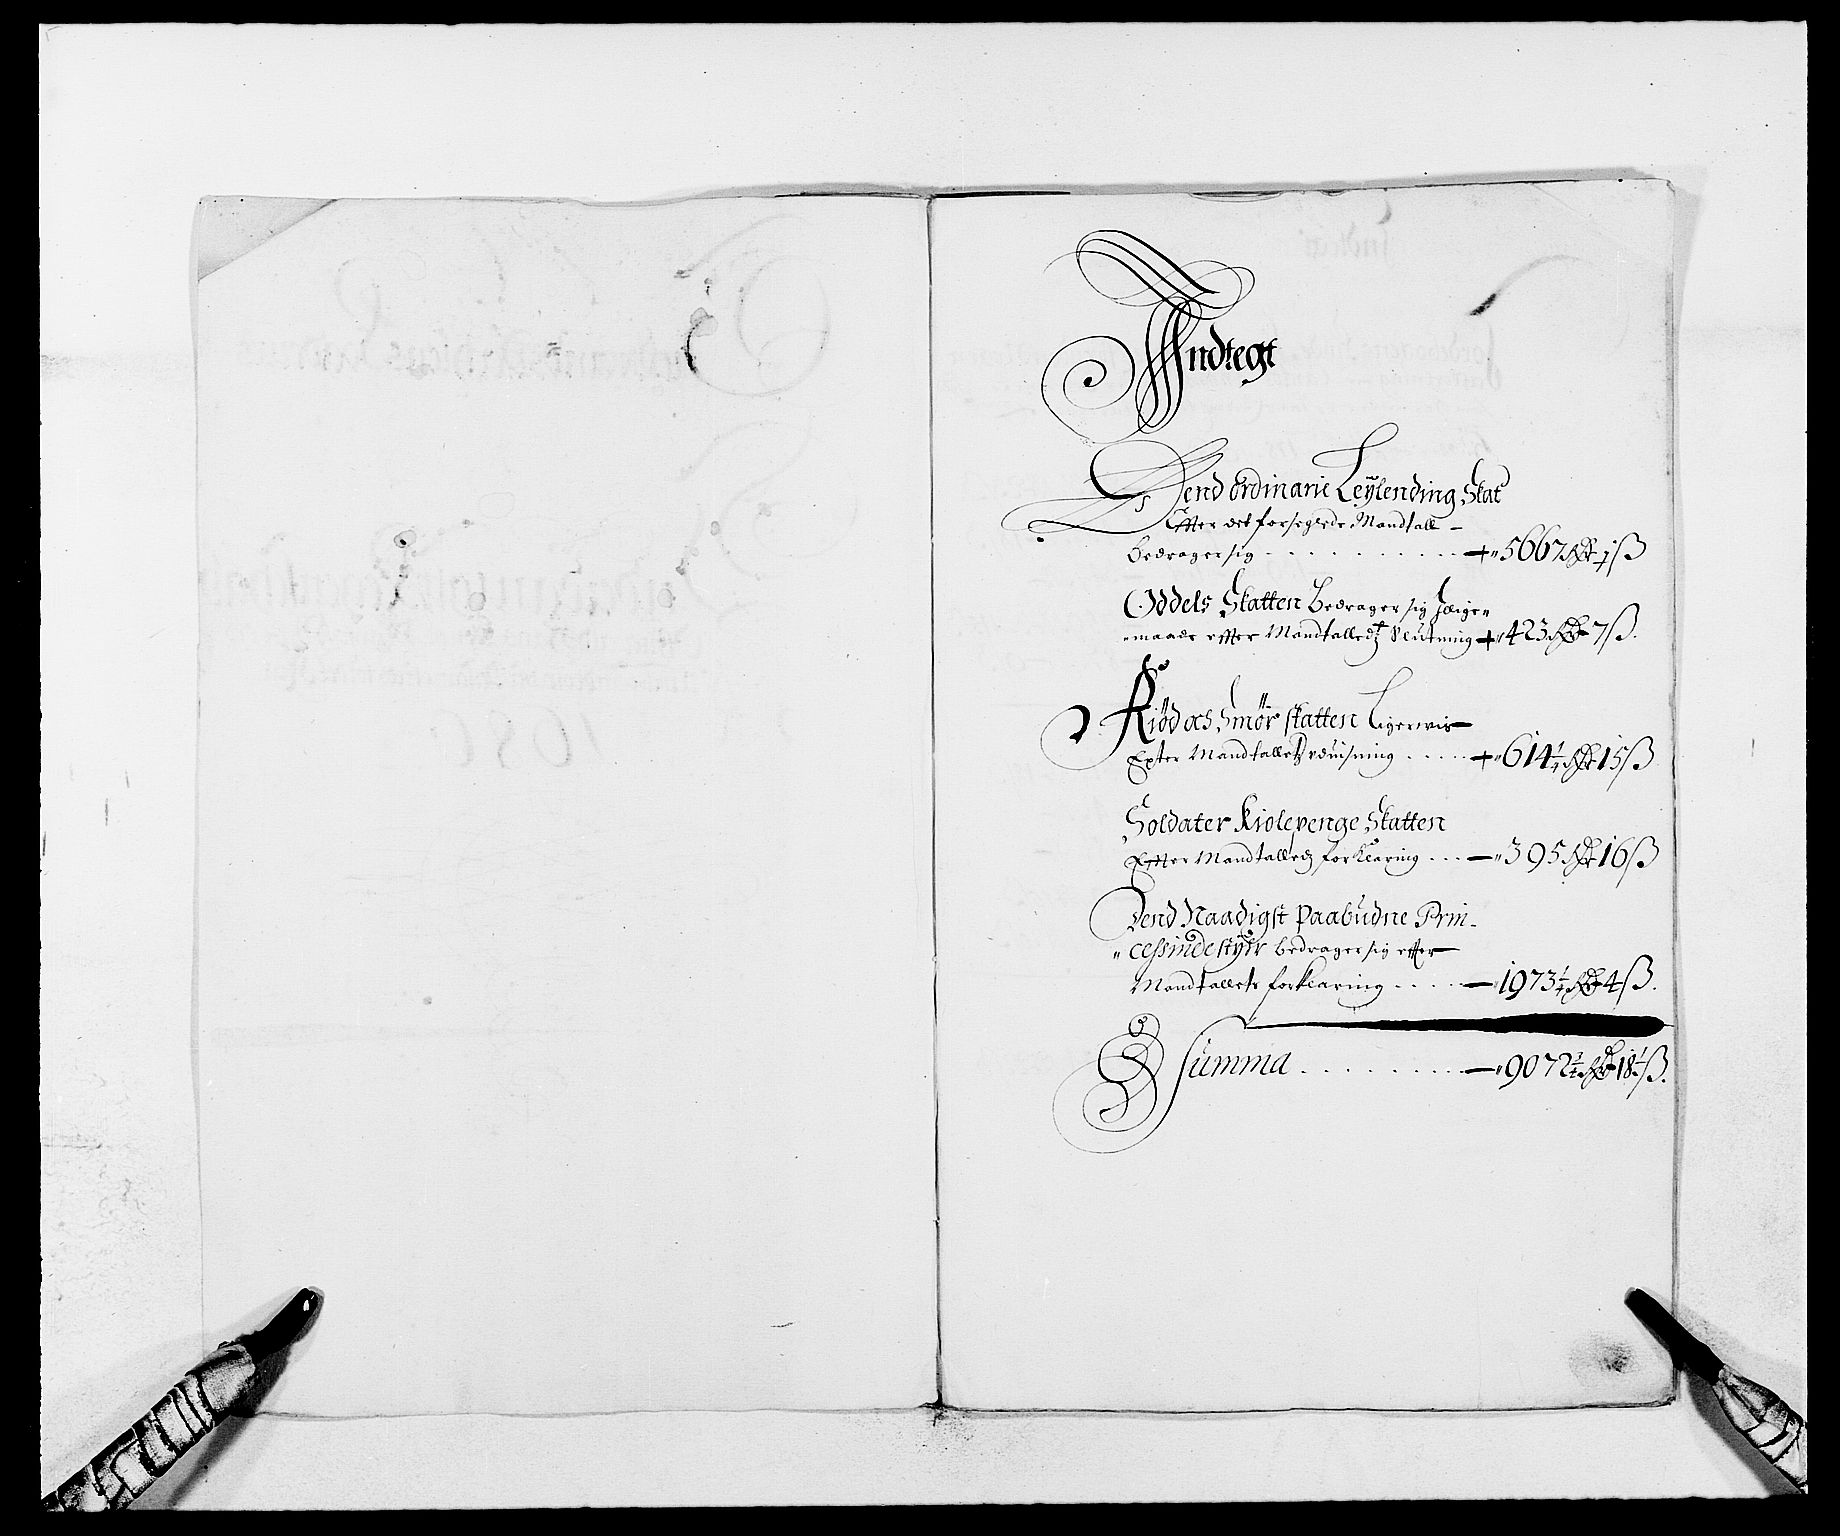 Indtegt
Dend ordinarie Leÿlending Skat
Effter det forseglede Mandtall -
Bedrager sig - - - - - - - - - - 5667 Rdr ½ ß
Oddels Skatten Bedrager sig Lige-
maade effter Mandtalledz 423 Rdr 7 ß.
Kiød oc Smør skatten Ligerwis
Epter Mandtalletz - - - - - 614¼ Rdr 15 ß
Soldater Kiolepenge Skatten
Effter Mandtalledz forklaring - - - 395 Rdr 16 ß
Dend Naadigst Paabudne Prin-
cessinde stÿr bedrager sig effter
Mandtallets forklaring - - - - - 1973¼ Rdr 4 ß.
Summa - - - - - - - - - 9072¾ Rdr 18½ ß.